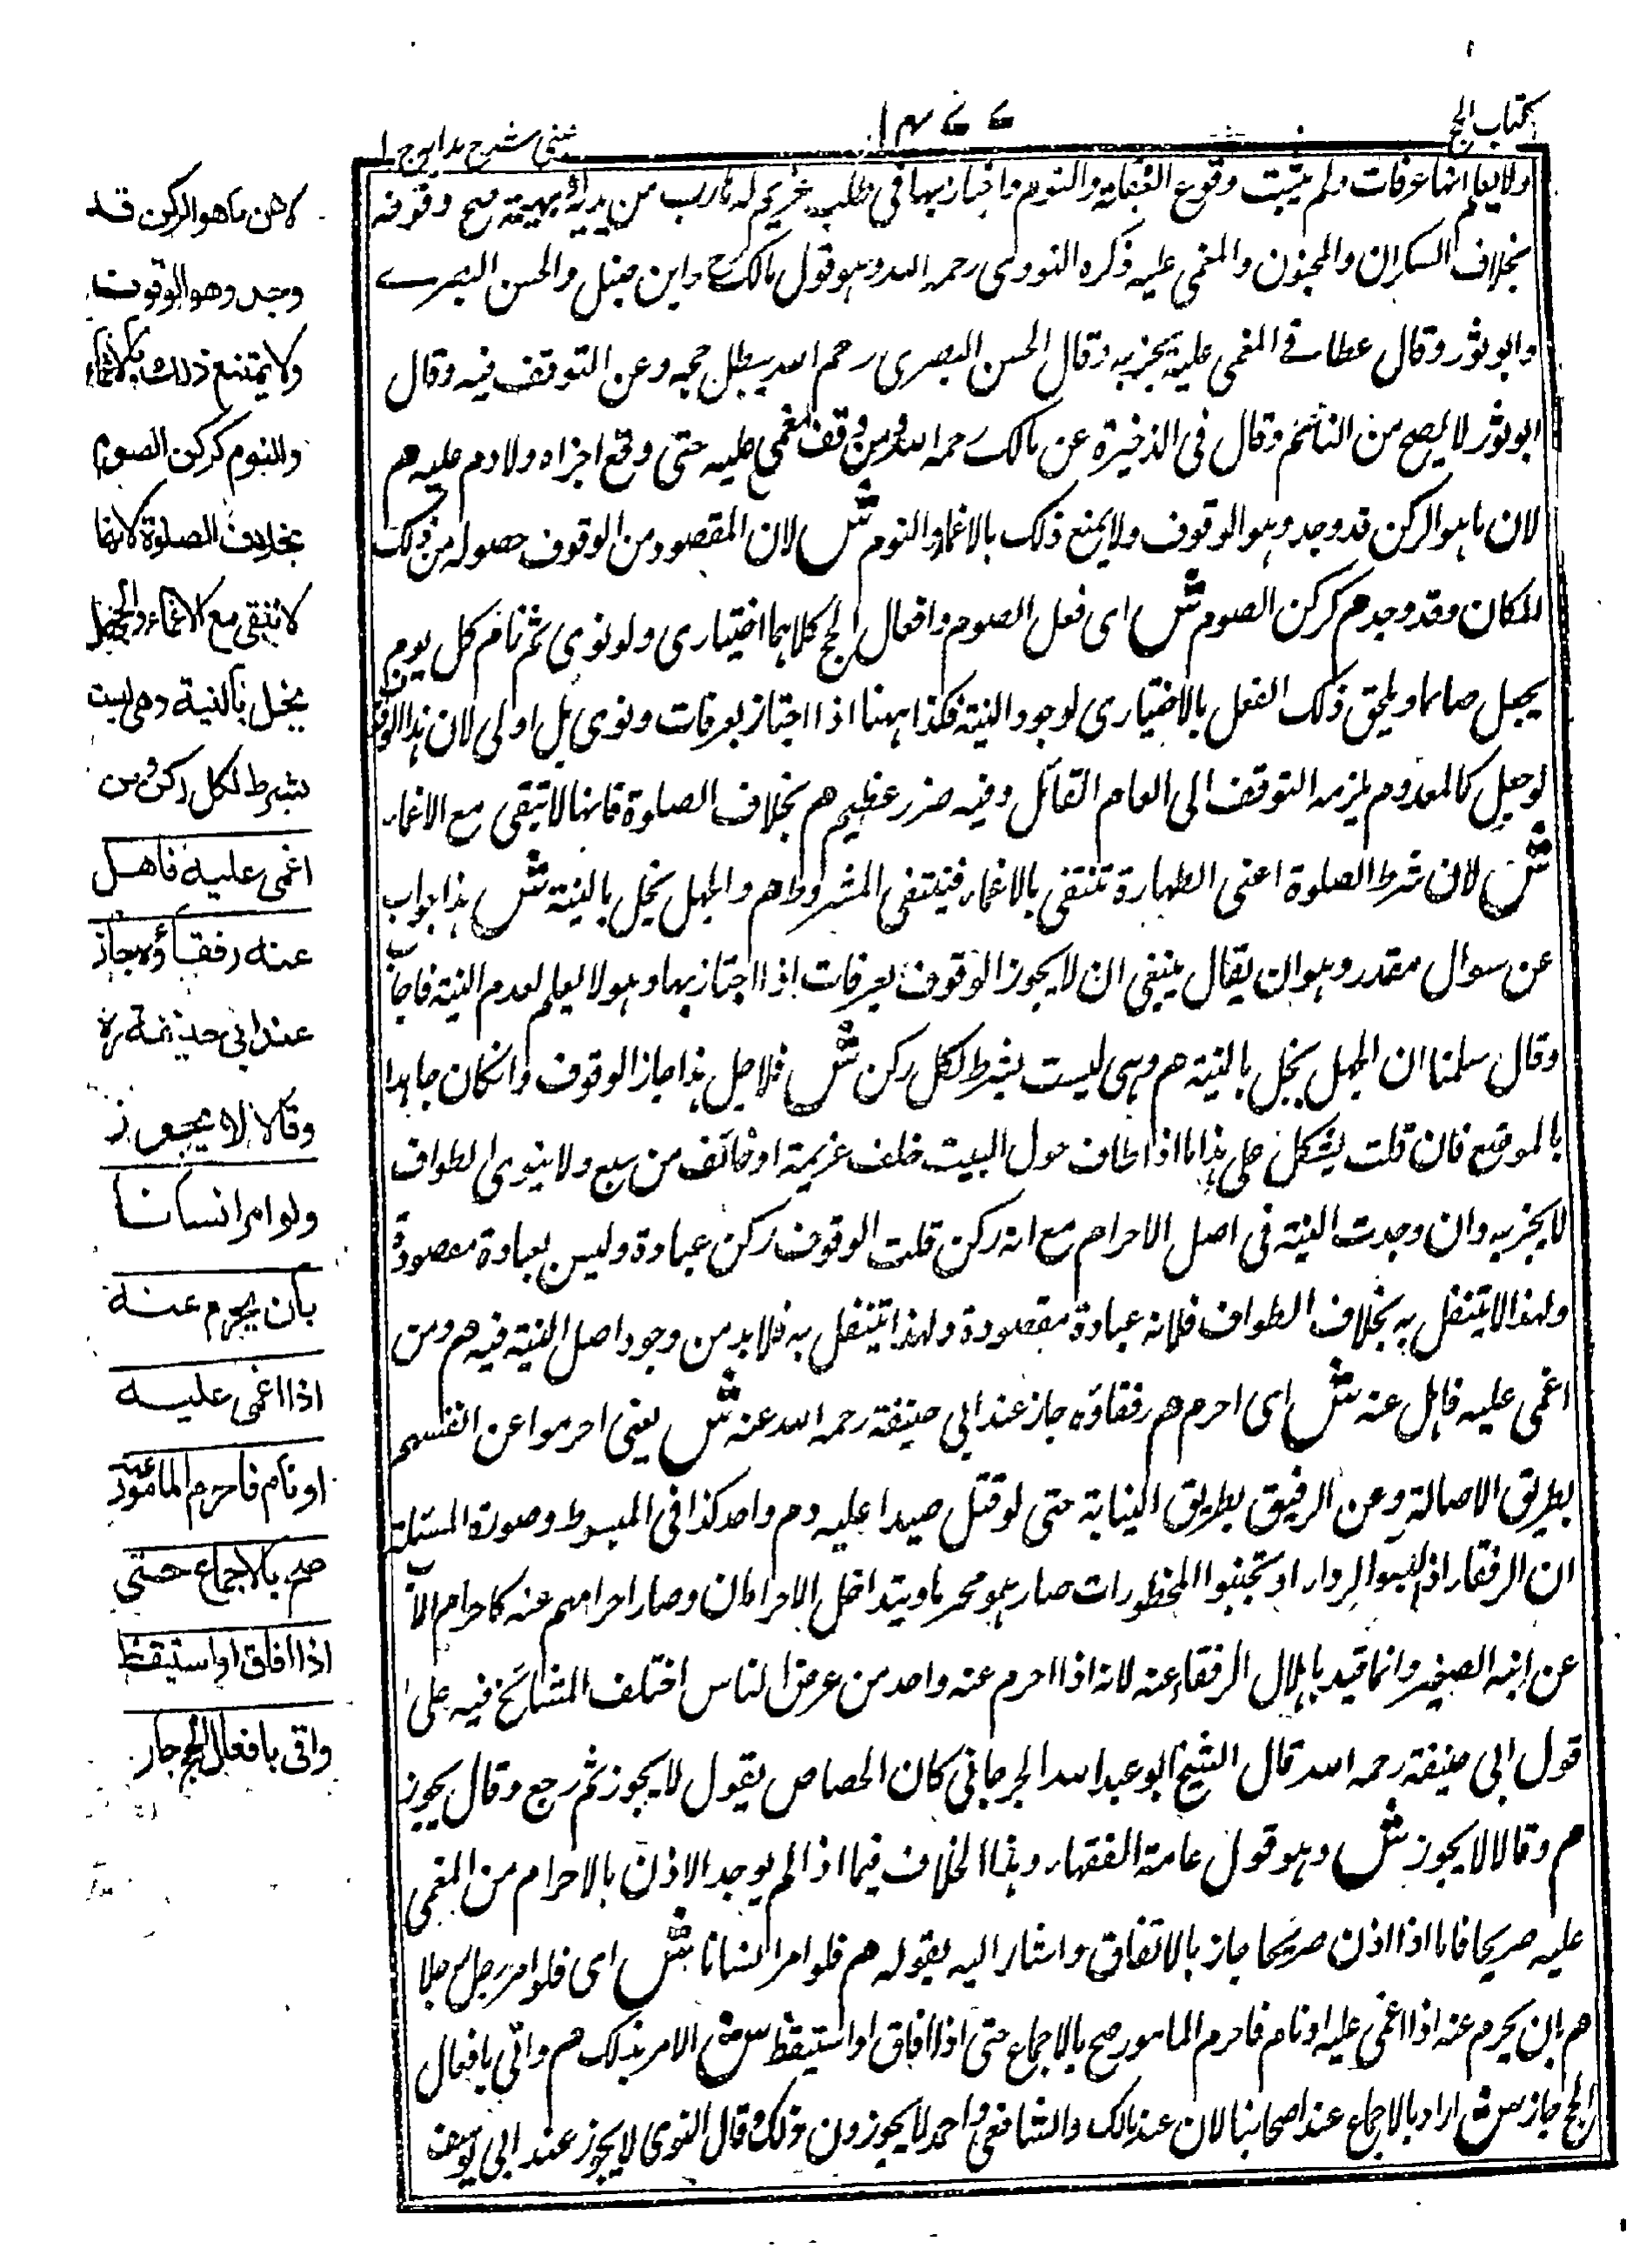 كتاب الحج
١٤٧٧
عينى شرح هدايه ج ١
ولا يعلم انها عرفات ولم يثبت وقوع الغفلة والنوم واجتاز بها في طلب غريم له هارب من يديه او بهيمة صح وقوفه
بخلاف السكران والمجنون والمغمى عليه ذكره النووى رحمه الله وهو قول مالك رح وابن حنبل والحسن البصرے
وابو ثور وقال عطا فے المغمى عليه يجزيه وقال الحسن البصرى رحمه الله يبطل حجه وعن التوقف فيه وقال
ابو ثور لا يصح من النائم وقال فى الذخيرة عن مالك رحمه الله ومن وقف مغمى عليه حتى وقع اجزاه ولا دم عليه هم
لان ما هو الركن قد وجد وهو الوقوف ولا يمنع ذلك بالاغماء والنوم ش لان المقصود من الوقوف حصوله من ذلك
المكان وقد وجد هم كركن الصوم ش اى فعل الصوم وافعال الحج كلاهما اختيارى ولو نوى ثم نام كل يوم
يجعل صائما ويلحق ذلك الفعل بالاختيارى لوجود النية فكذا ههنا اذا اجتاز بعرفات ونوى بل اولى لان هذا الوقوف
لو جعل كالمعدوم يلزمه التوقف الى العام القابل وفيه ضرر عظيم هم بخلاف الصلوة فانها لا تبقى مع الاغماء
ش لان شرط الصلوة اعنى الطهارة تنتفى بالاغماء فينتفى المشروط هم والجهل يخل بالنية ش هذا جواب
عن سوال مقدر وهو ان يقال ينبغى ان لا يجوز الوقوف بعرفات اذا اجتاز بها وهو لا يعلم لعدم النية فاجاب
وقال سلمنا ان الجهل يخل بالنية هم وهى ليست بشرط لكل ركن ش فلاجل هذا جاز الوقوف وانكان جاهلا
بالموضع فان قلت يشكل على هذا ما اذا طاف حول البيت خلف غريمه او خائف من سبع ولا ينوى الطواف
لا يجزيه وان وجدت النية فى اصل الاحرام مع انه ركن قلت الوقوف ركن عبادة وليس بعبادة مقصودة
ولهذا لا يتنفل به بخلاف الطواف فلانه عبادة مقصودة ولهذا يتنفل به فلا بد من وجود اصل النية فيه هم ومن
اغمى عليه فاهل عنه ش اى احرم هم رفقاؤه جاز عند ابي حنيفة رحمه الله عنه ش يعنى احرموا عن انفسهم
بطريق الاصالة وعن الرفيق بطريق النيابة حتى لو قتل صيدا عليه دم واحد كذا فى المبسوط وصورة المسئلة
ان الرفقاء اذا لبسوا الرداء او تجنبوا المحظورات صار هو محرما ويتداخل الاحرامان وصار احرامهم عنه كاحرام الاب
عن ابنه الصغير وانما قيد باهلال الرفقاء عنه لانه اذا احرم عنه واحد من عرض الناس اختلف المشائخ فيه على
قول ابى حنيفة رحمه الله قال الشيخ ابو عبد الله الجرجاني كان الحصاص يقول لا يجوز ثم رجع وقال يجوز
هم وقالا لا يجوز ش وهو قول عامة الفقهاء وهذا الخلاف فيما اذا لم يوجد الاذن بالاحرام من المغمى
عليه صريحا فاما اذا اذن صريحا جاز بالاتفاق واشار اليه بقوله هم فلو امر انسانا ش اى فلو امر رجل رجلا
هم بان يحرم عنه اذا اغمى عليه او نام فاحرم المامور صح بالاجماع حتى اذا افاق او استيقظ ش الامر بذلك هم واتى بافعال
الحج جاز ش اراد بالاجماع عند اصحابنا لان عند مالك والشافعى واحمد لا يجوزون ذلك وقال النووى لا يجوز عند ابى يوسف
لان ما هو الركن قد
وجد وهو الوقوف
ولا يمتنع ذلك بالاغماء
والنوم كركن الصوم
بخلاف الصلوة لانها
لا تبقى مع الاغماء والجهل
يخل بالنية وهى ليست
بشرط لكل ركن ومن
اغمى عليه فاهل
عنه رفقاؤه جاز
عند ابى حنيفة ره
وقالا لا يجوز
ولو امر انسانا
بان يحرم عنه
اذا اغمى عليه
او نام فاحرم المامور عنه
صح بالاجماع حتى
اذا افاق او استيقظ
واتى بافعال الحج جاز